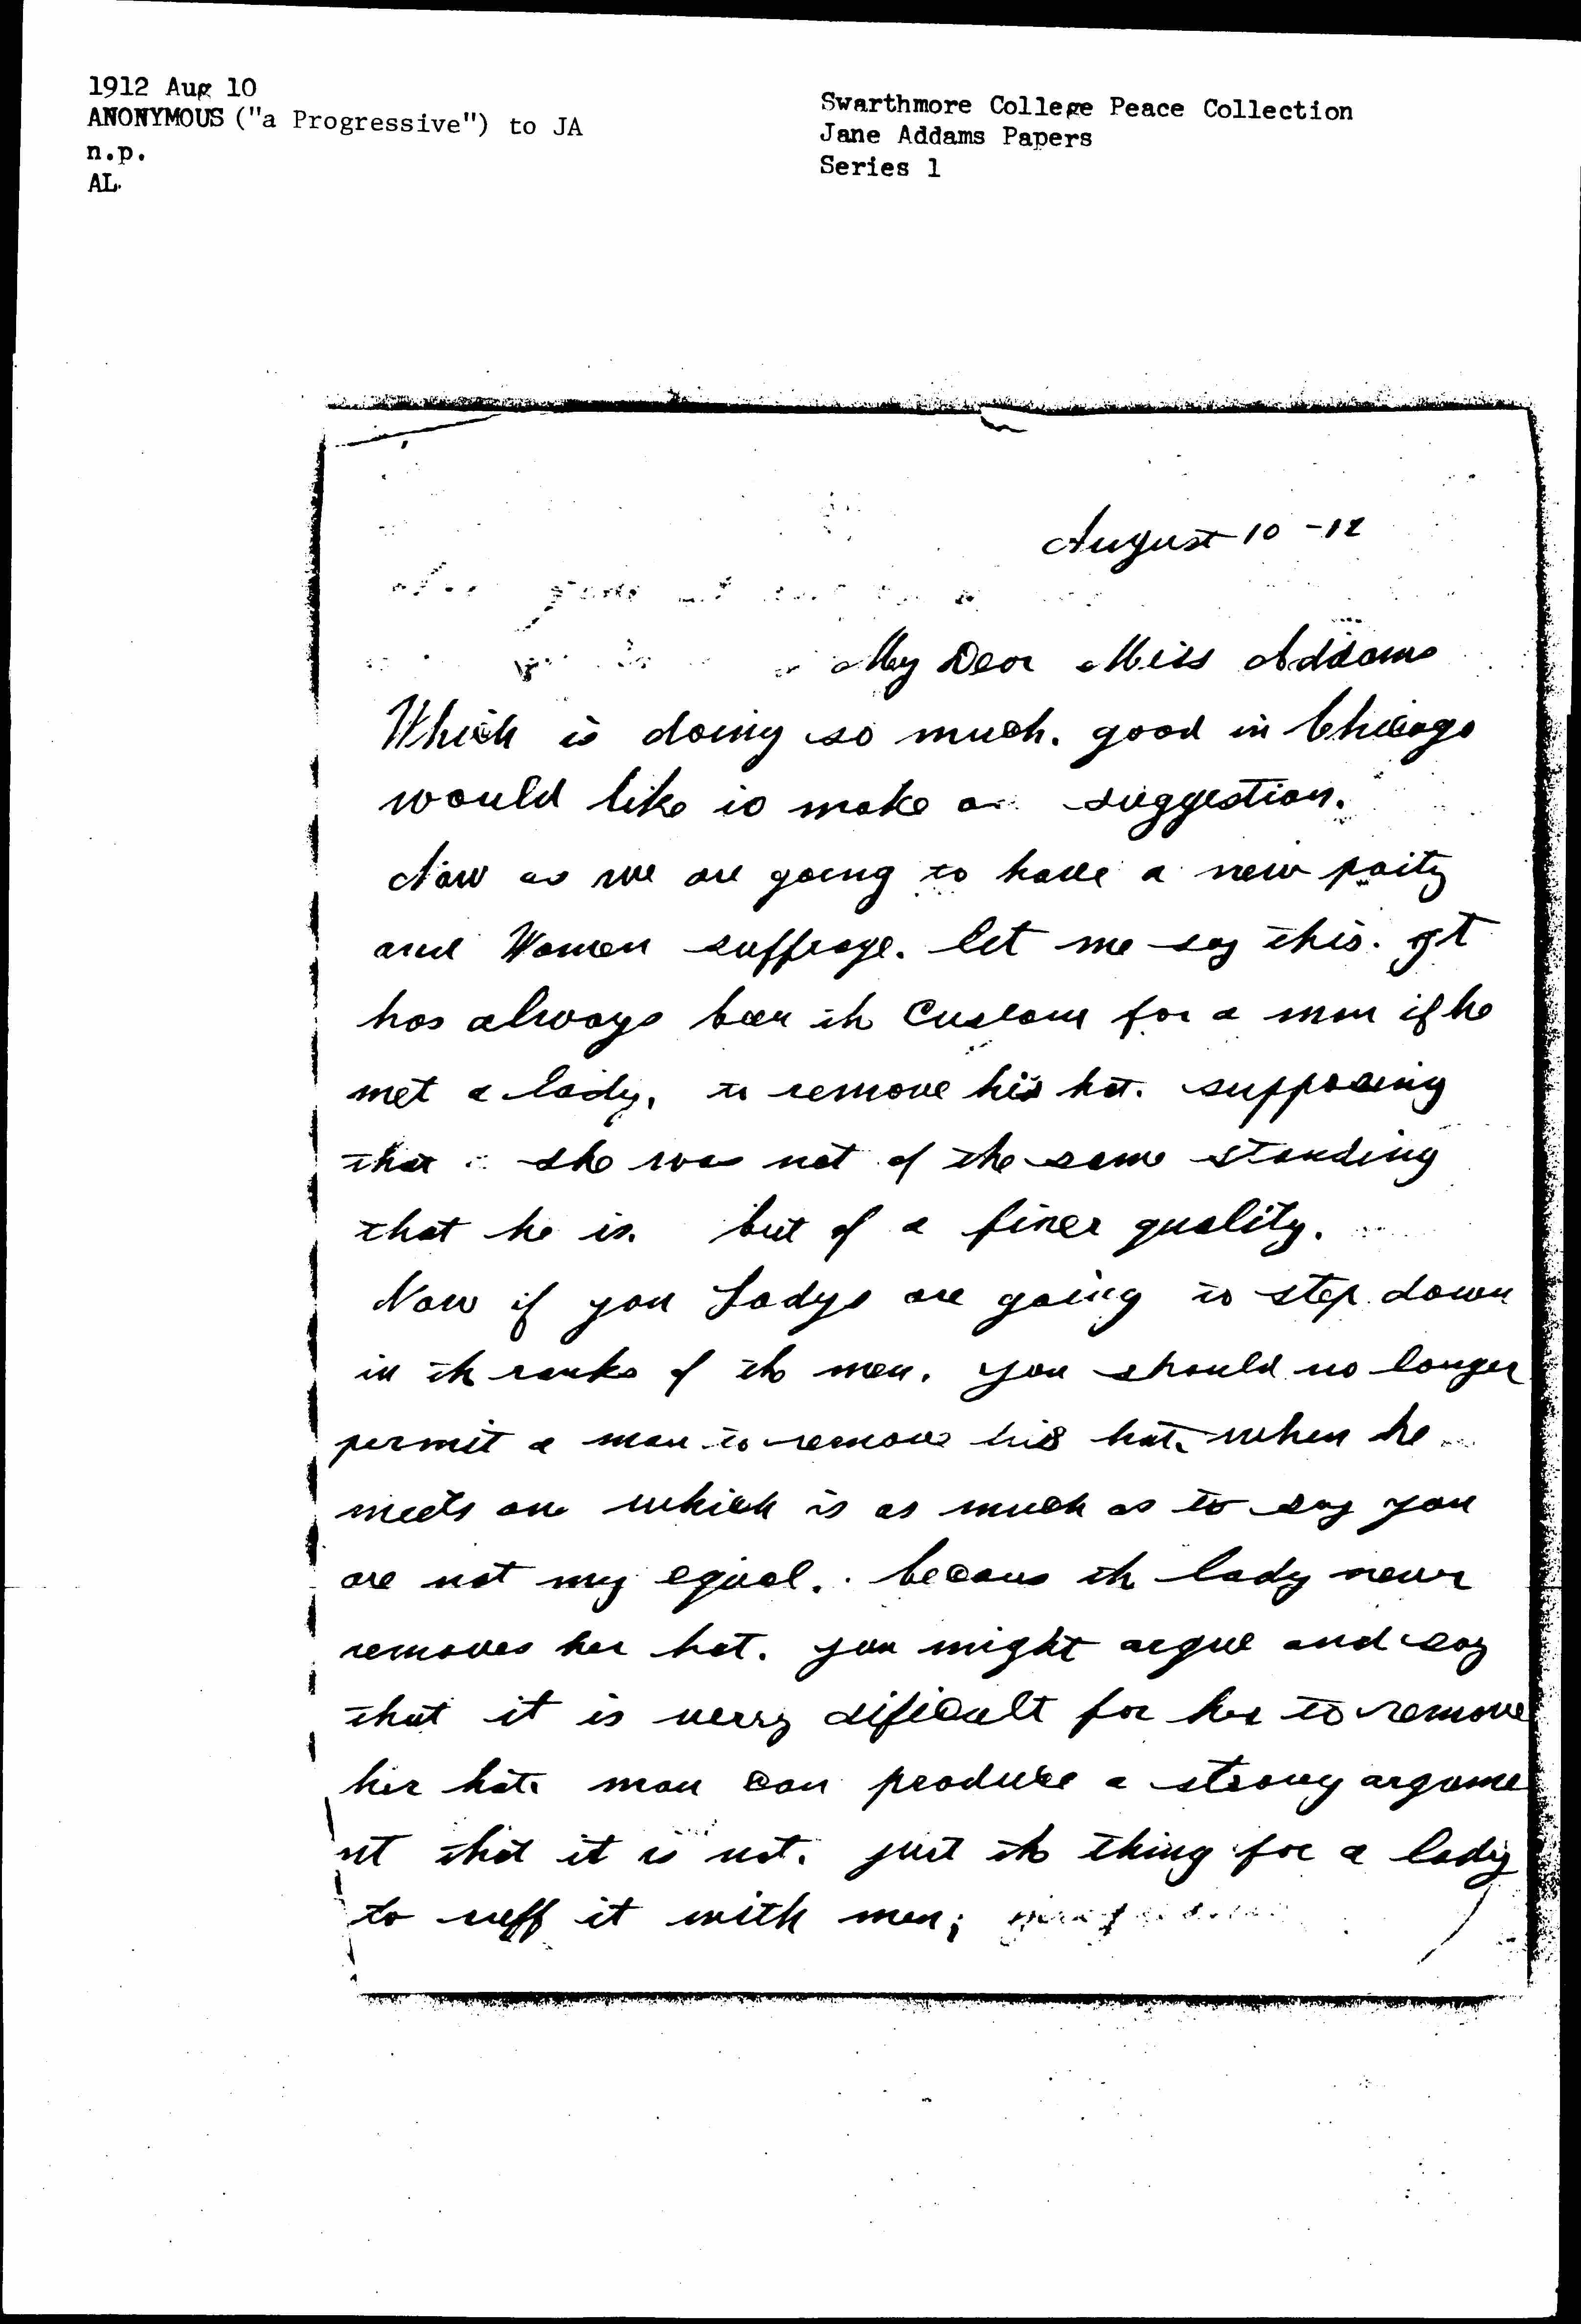 1912 Aug 10
ANONYMOUS ("a Progressive") to JA
n.p.
AL.
Swarthmore College Peace Collection
Jane Addams Papers
Series 1
August 10 - 12
My Dear Miss Addams
Which is doing so much. good in Chicago
would like to make a suggestion.
Now as we are going to have a new party
and Women suffrage. let me say this. It
has always been th Custom for a man if he
met a lady, to remove his hat. supposing
that she was not of the same standing
that he is. but of a finer quality.
Now if you Ladys are going to step down
in th ranks of th men. you should no longer
permit a man to remove his hat. when he
meets one which is as much as to say you
are not my equal. becaus th lady never
removes her hat. you might argue and say
that it is verry dificult for her to remove
her hat. man can produce a strong argume
nt that it is not. just th thing for a lady
to ruff it with men;